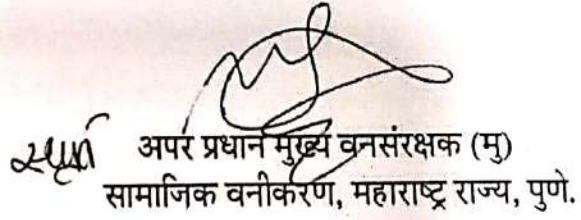 अपर प्रधान मुख्य वनसंरक्षक (मु)
सामाजिक वनीकरण, महाराष्ट्र राज्य, पुणे.